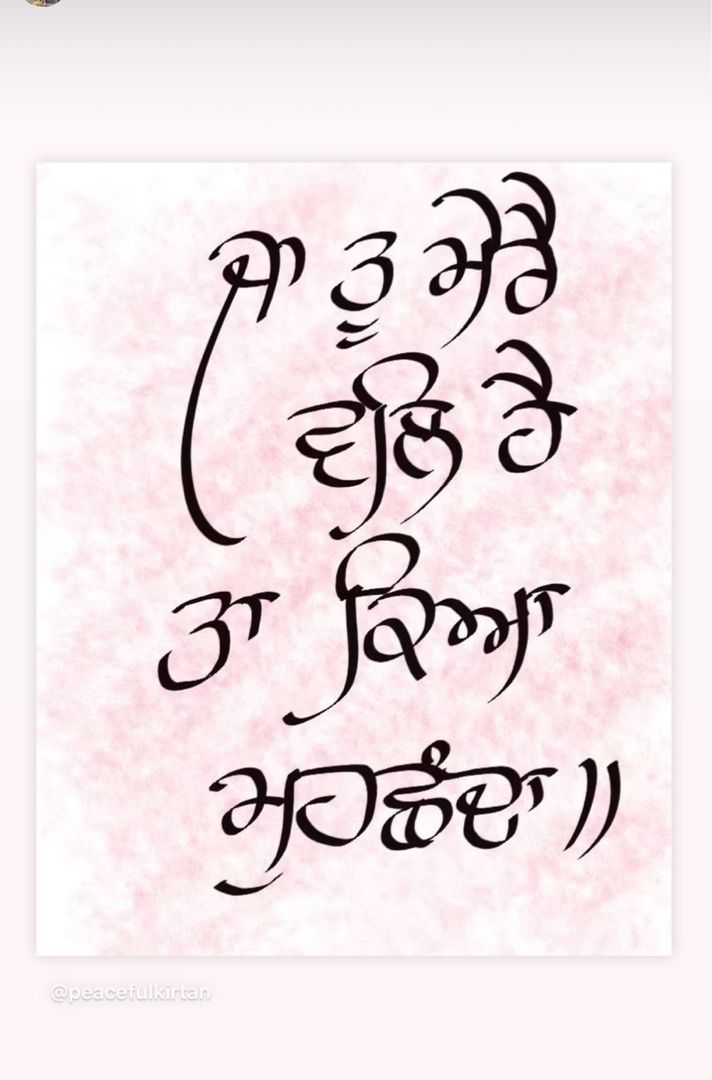 ਜਾ ਤੂ ਮੇਰੈ
ਵਲਿ ਹੈ
ਤਾ ਕਿਆ
ਮੁਹਛੰਦਾ॥
@peacefulkirtan